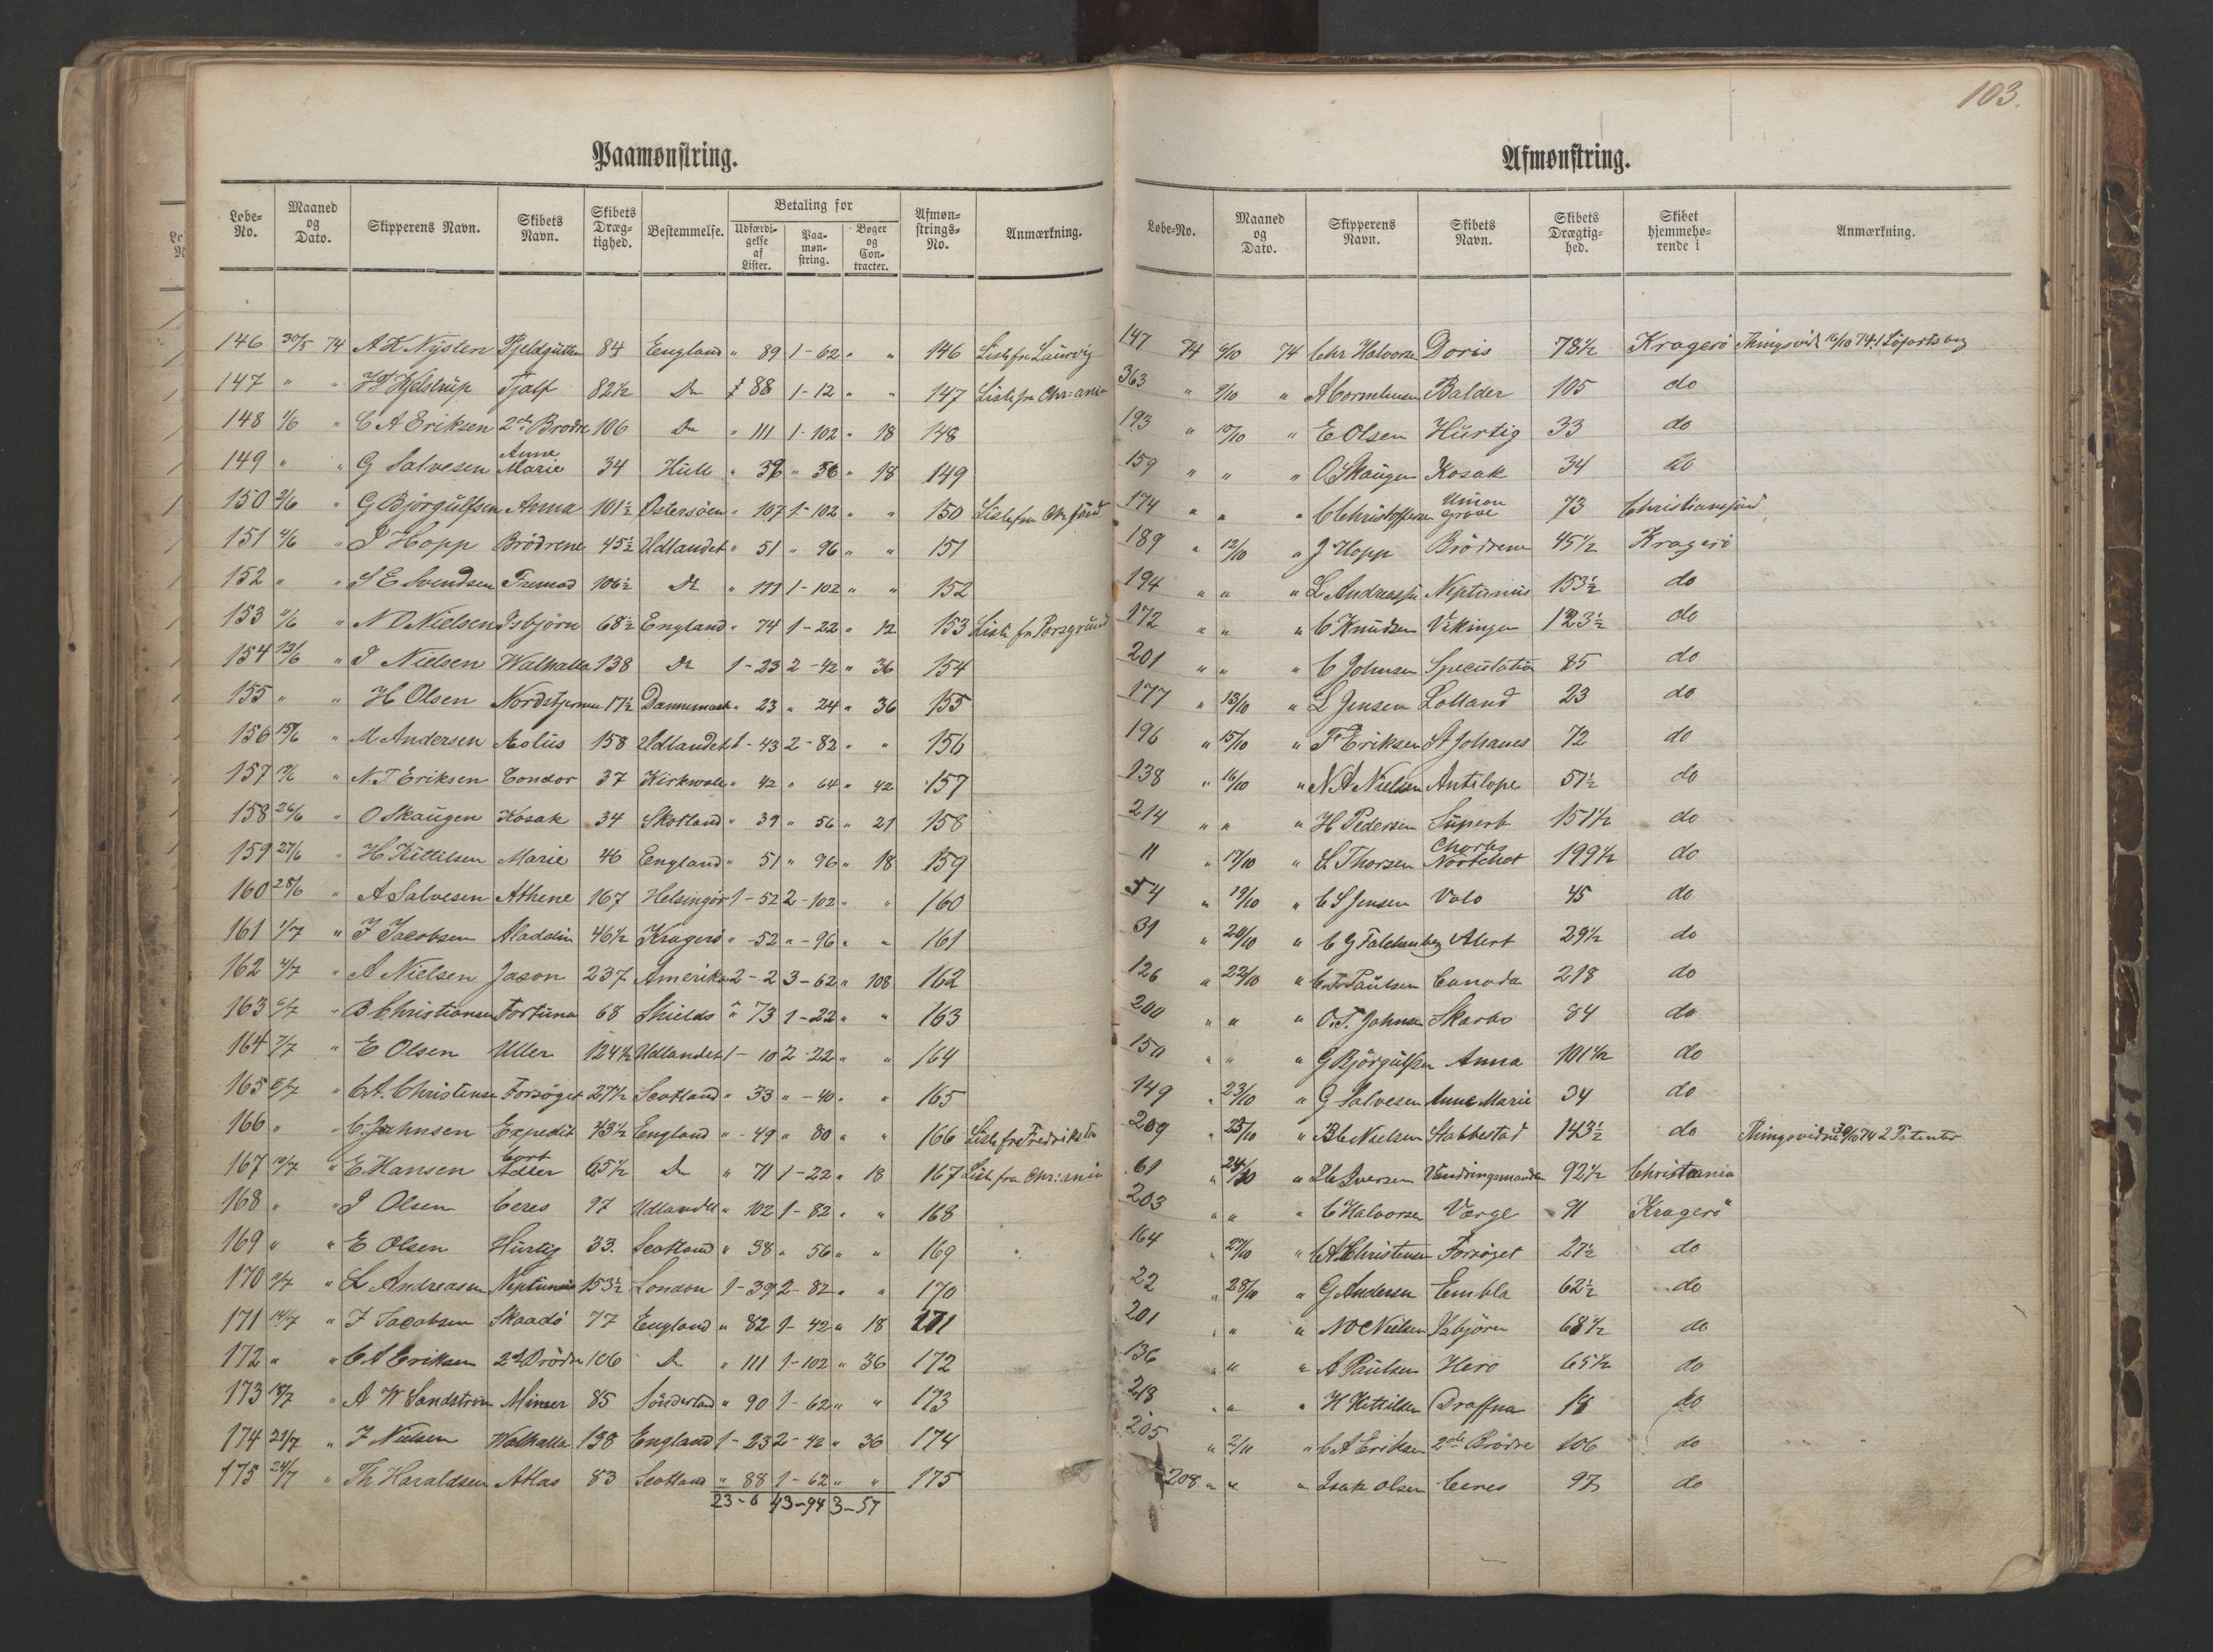 103.
Paamønstring.
Løbe-No. | Maaned og Dato. | Skipperens Navn. | Skibets Navn. | Skibets Dræg-tighed. | Bestemmelse. | Betaling for | Udfærdi-gelse af Lister. | Paa-møn-string. | Bøger og Con-tracter. | Afmøn-strings-No. | Anmærkning.
146 30/5 74 A K Nysten Fjeldgutten 84 England " 89 1-62 " " 146 Liste fra Laurvig
147 " " Fjalf 82½ Do 88 1-12 " " 147 Liste fra Chr:ania
148 1/6 " C A Eriksen 2de Brødre 106 Do " 111 1-102 " 18 148
149 " " G Salvesen Anne Marie 34 Hull " 39 " 56 " 18 149
150 2/6 " G Bjørgulfsen Anna 101½ Østersøen " 107 1-102 " " 150 Liste fra Chr sand
151 4/6 " J Hopp Brødrene 45½ Udlandet " 51 " 96 " " 151
152 " " S E Svendsen Fremad 106½ Do " 111 1-102 " " 152
153 " N O Nielsen Isbjørn 68½ England " 74 1-22 " 12 153 Liste fra Porsgrund
154 13/6 " J Nielsen Walhalla 138 Do 1-23 2-42 " 36 154
155 " " H Olsen Nordstjernen 17½ Dannemark " 23 " 24 " 36 155
156 15/6 " M Andersen Aolus 158 Udlandet 1-43 2-82 " " 156
157 " N.T Eriksen Condor 37 Kirkwale " 42 " 64 " 42 157
158 26/6 " O Skaugen Kosak 34 Skotland " 39 " 56 " 21 158
159 27/6 " H Kittilsen Marie 46 England " 51 " 96 " 18 159
160 28/6 " A Salvesen Athene 167 Helsingør 1-52 2-102 " " 160
161 1/7 " J Jacobsen Aladdin 46½ Kragerø " -52 " -96 " " 161
162 4/7 " A Nielsen Jason 237 Amerika 2-2 3-62 " 108 162
163 6/7 " B Christiansen Fortuna 68 Shields " 73 1-22 " " 163
164 7/7 " E Olsen Uller 124½ Udlandet 1-10 2-22 " " 164
165 8/7 " C A. Christensen Forsøget 27½ Scotland " 33 " -40 " " 165
166 " " C. Johnsen Expedit 43½ England " -49 " 80 " " 166 Liste fra Fredrikstad
167 10/7 " E Hansen Cort Adler 65½ Do " 71 1-22 " 18 167 Liste fra Chr:ania
168 " " J Olsen Ceres 97 Udlandet " 102 1-82 " " 168
169 " " E Olsen Hurtig 33. Scotland " 38 " 56 " " 169
170 " L Andreasen Neptunus 153½ London 1-39 2-82 " " 170
171 14/7 " J Jacobsen Skaadø 77 England " 82 1-42 " 18 171
172 " " C A Eriksen 2de Brødre 106 Do " 111 1-102 " 36 172
173 18/7 " A W Sandstrøm Minser 85 Sunderland " 90 1-62 " " 173
174 21/7 " J Nielsen Walhalla 138 England 1-23 2-42 " 36 174
175 24/7 " Th Haraldsen Atlas 83 Scotland " 88 1-62 " " 175
23-6 43-94 3-57
Afmønstring.
Løbe-No. | Maaned og Dato. | Skipperens Navn. | Skibets Navn. | Skibets Drægtig-hed. | Skibet hjemmehø-rende i | Anmærkning.
147 74 6/10 74 Chr Halvorsen Doris 78½ Kragerø
363 " 9/10 " A Cornelinsen Balder 105 do
193 " 10/10 " E Olsen Hurtig 33 do
159 " " " O Skaugen Kosak 34 do
174 " " " C Christophersen Union Grove 73 Christianssund
189 " 12/10 " J Hopp Brødrene 45½ Kragerø
194 " " " L Andreassen Neptunus 153½ do
172 " " " C Knudsen Vikingen 123½ do
201 " " " C Johnsen Speculation 85 do
177 " 13/10 " L Jensen Lolland 23 do
196 " 15/10 " F Eriksen St Johanes 72 do
138 " 16/10 " N A Nielsen Antilope 57½ do
214 " " " H Pedersen Superb 151½ do
11 " 17/10 " L Thorsen 199½ do
54 " 19/10 " C S Jensen Valo 45 do
31 " 20/10 " C G Falchenberg Alert 29½ do
126 " 22/10 " C. F. Paulsen Canada 218 do
200 " " " O. T. Johnsen Skarbo 84 do
150 " " " G Bjørgulfsen Anna 101½ do
149 " 23/10 " G Salvesen Anne Marie 34 do
209 " 25/10 " B C Nielsen Stabbestad 143½ do Thingsvidne 30/10 74 2 Patenter
61 " 24/10 " Iversen Vandringsmanden 92½ Christiania
203 " " " C Halvorsen Værge 91 Kragerø
164 " 27/10 " C A Christensen Forsøget 27½ do
22 " 28/10 " G Andersen Embla 62½ do
201 " " " N O Nielsen Isbjørn 68½ do
136 " " " A Paulsen Hero 65½ do
213 " " " H Kittilsen Draffna 18 do
205 " 2/11 " C A Eriksen 2de Brødre 106 do
208 " " " Isak Olsen Ceres 97 do